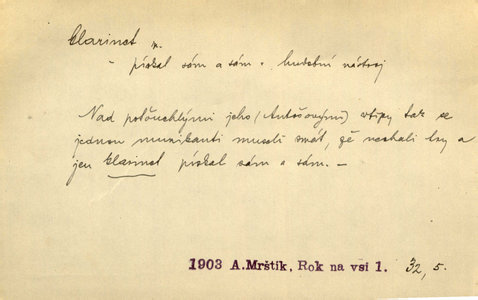 klarinet
- pískal sám a sám. hudební nástroj
Nad potouchlými jeho (Antošovými) vtipy tak se
jednou muzikanti museli smát, že nechali hry a
jen klarinet pískal sám a sám. —
1903 A. Mrštík, Rok na vsi 1. 32, 5.